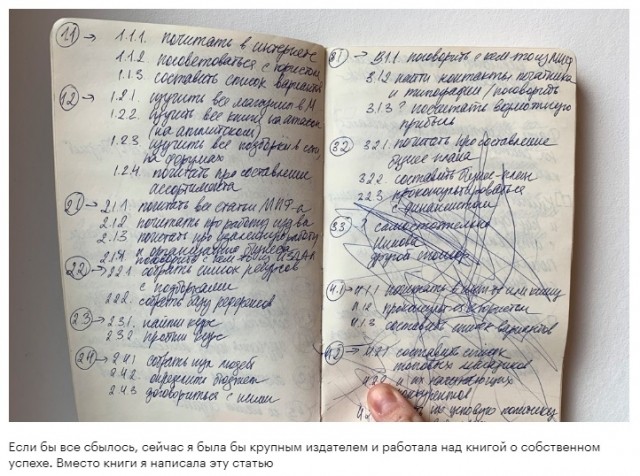 1.1 → 1.1.1. почитать в интернете
1.1.2. посоветоваться с юристом
1.1.3 составить список вариантов
1.2 → 1.2.1. изучить все магазины в М.
1.2.2. изучить все книги на
(на английском)
1.2.3 изучить все подборки в
на форумах
1.2.4. почитать про составление
ассортимента
2.1 → 2.1.1. почитать все статьи МИФ-а
2.1.2 почитать про работу изд-ва
2.1.3 почитать про
и организацию бизнеса
2.1.4 поговорить с кем-то из
2.2 → 2.2.1 собрать список ресурсов
с подборками
2.2.2. собрать базу
2.3 → 2.3.1. найти курс
2.3.2 пройти курс
2.4 → 2.4.1. собрать пул людей
2.4.2. определить бюджет
2.4.3 договориться с ними
3.1 → 3.1.1 поговорить с кем-то из МИФ
3.1.2 найти контакты
и типографии / поговорить
3.1.3 ? посчитать возможную
прибыль
3.2 3.2.1. почитать про составление
бизнес плана
3.2.2. составить бизнес-план
2.2.3 проконсультироваться
с
3.3 самостоятельно
другой
4.1 → 4.1.1
4.1.2.
4.1.3 составить список вариантов
4.2 → 4.2.1 составить список
4.2.2 и их
ценовую политику
Если бы все сбылось, сейчас я была бы крупным издателем и работала над книгой о собственном
успехе. Вместо книги я написала эту статью